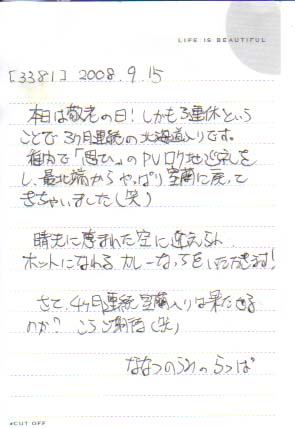 LIFE IS BEAUTIFUL
[3381] 2008.9.15
本日は敬老の日!しかも3連休という
ことで3ヶ月連続の北海道入りです。
稚内で「思ひ」のPVロケ地巡りを
し、最北端からやっぱり室蘭に戻って
きちゃいました(笑)
晴天に恵まれた空に迎えられ、
ホットになれるカレーなっちをいただきます!
さて、4ヶ月連続室蘭入りは果たせる
のか? こうご期待(笑)
ななつのうみのらっぱ
*CUT OFF